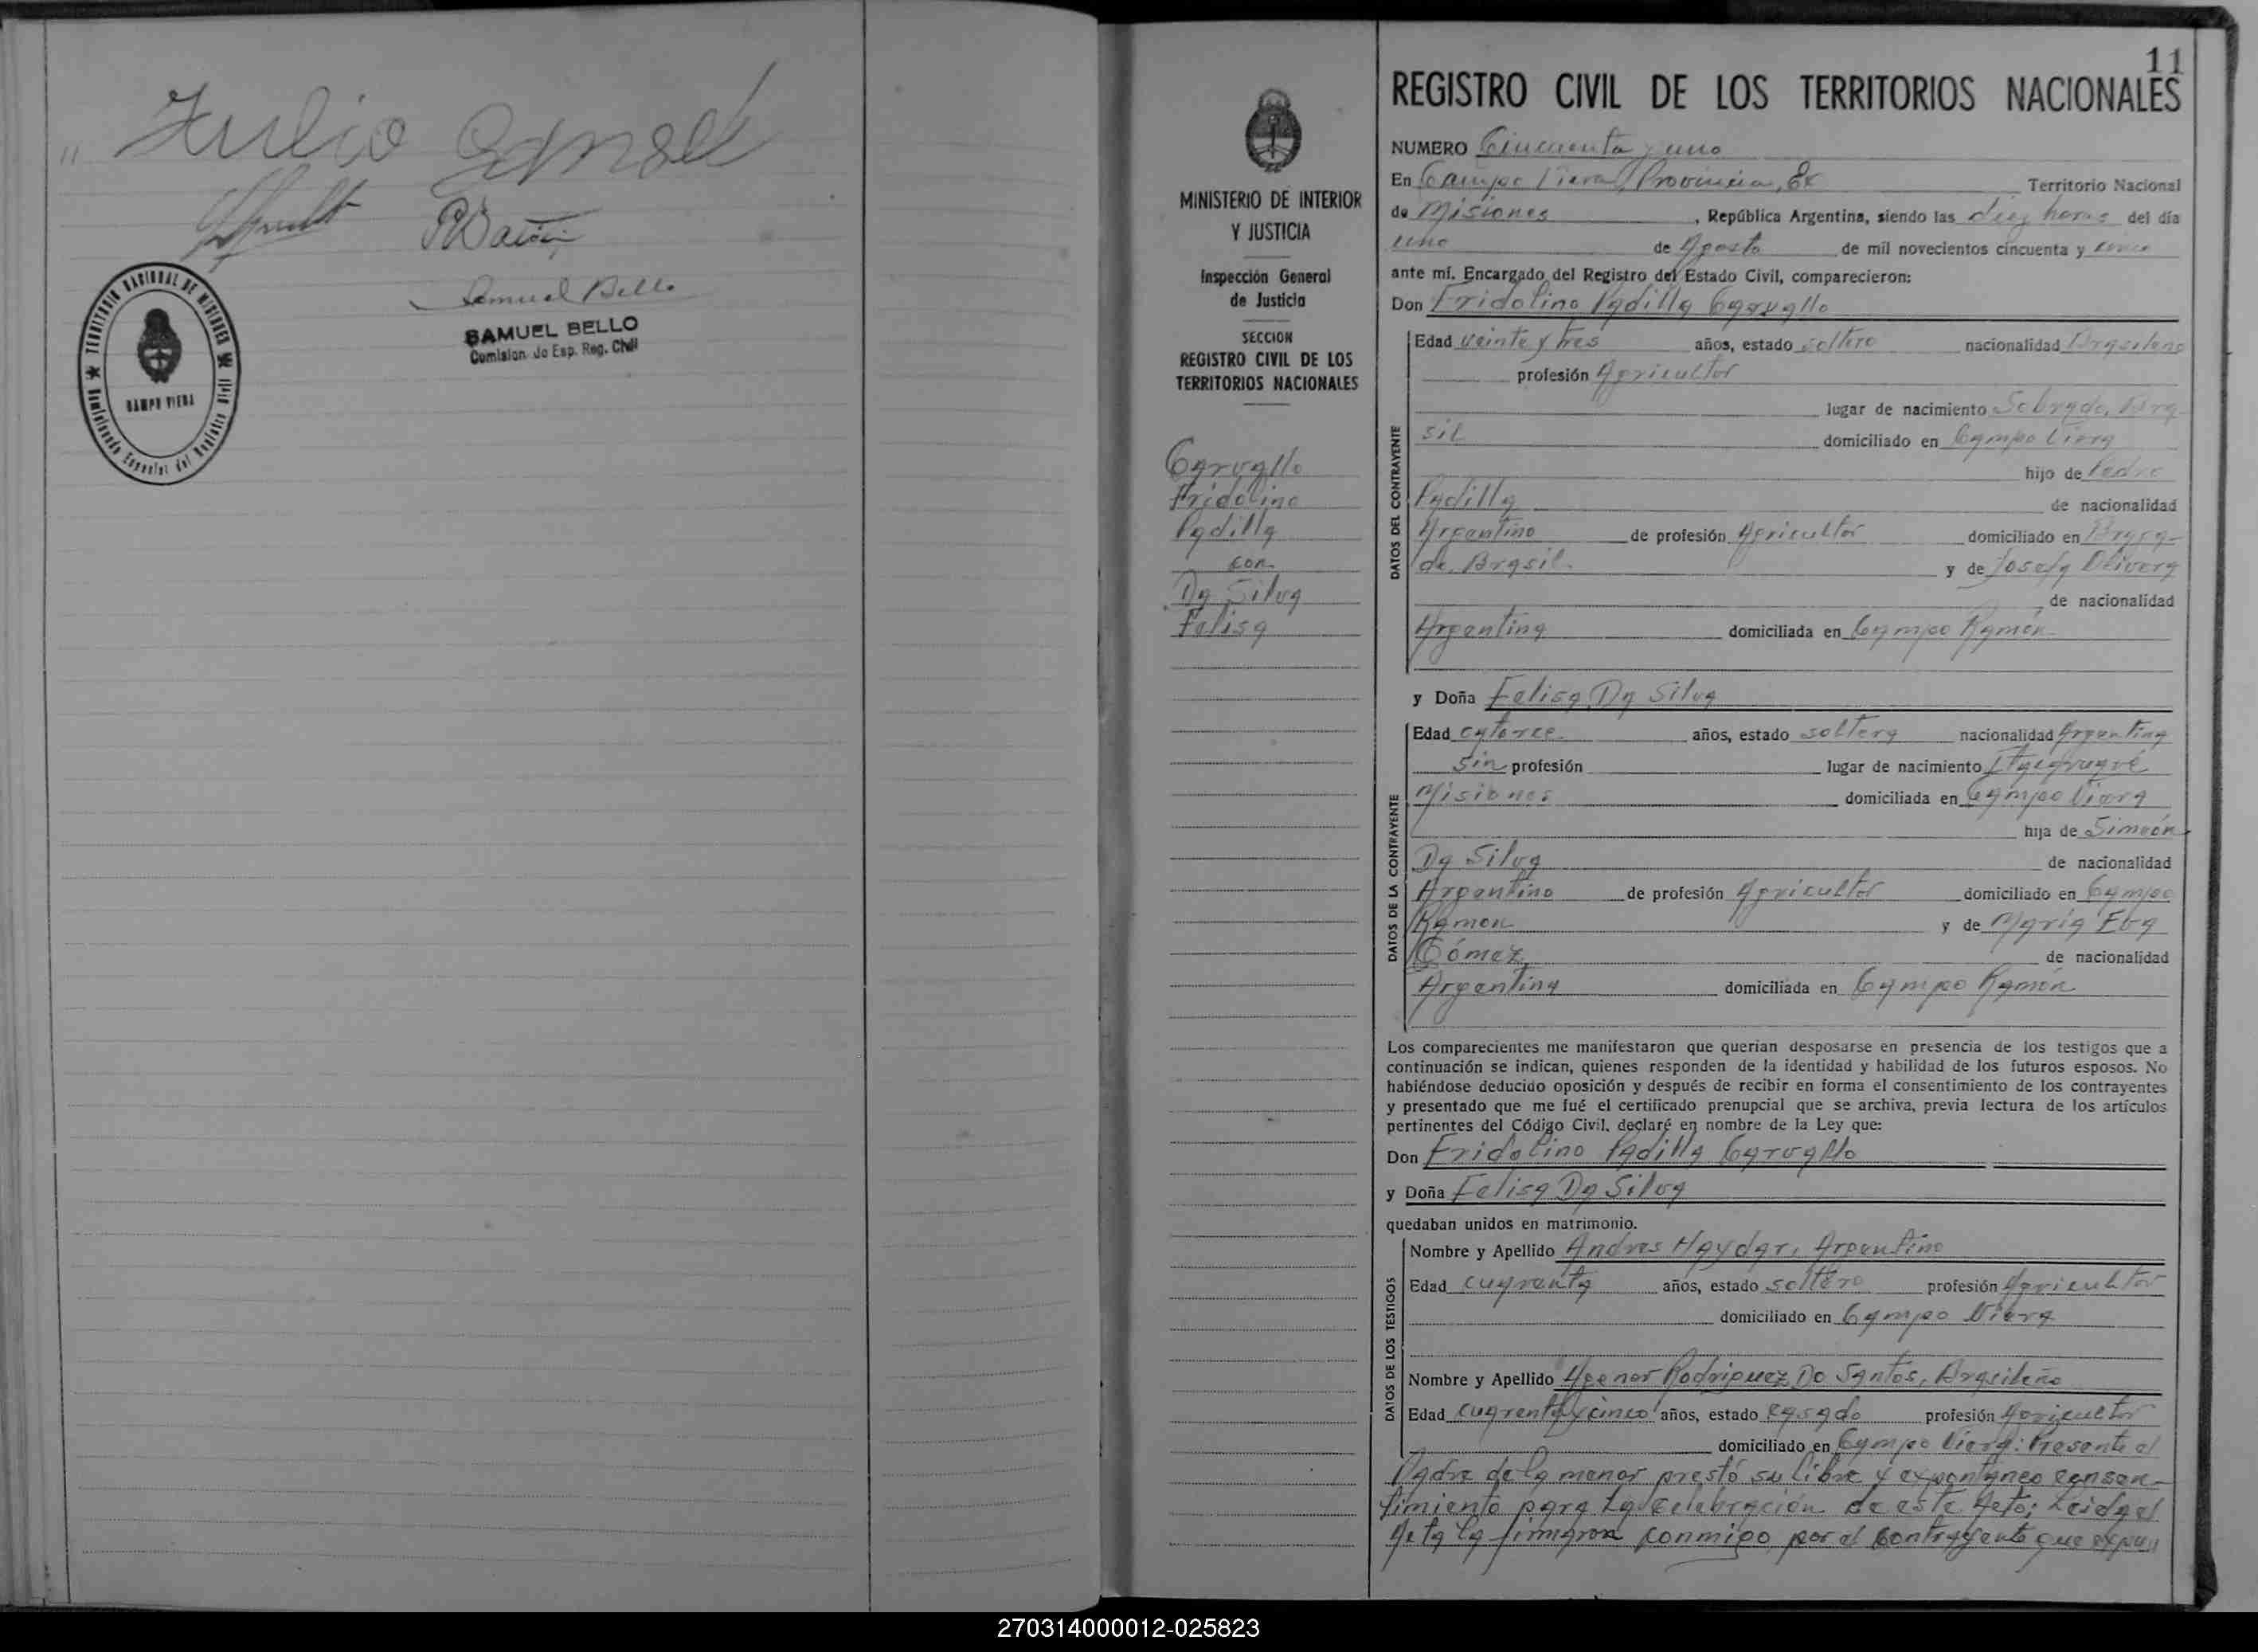 " Julio
SAMUEL BELLO
Comision. de Esp. Reg. Civil
Samuel Bello
TERRITORIO NACIONAL DE MISIONES
CAMPO VIERA
11
REGISTRO CIVIL DE LOS TERRITORIOS NACIONALES
MINISTERIO DE INTERIOR
Y JUSTICIA
Inspección General
de Justicia
SECCION
REGISTRO CIVIL DE LOS
TERRITORIOS NACIONALES
Carvallo
Fridolino
Padilla
con
Da Silva
Felisa
NUMERO Cincuenta y uno
En Campo Viera, Provincia, Ex Territorio Nacional
de Misiones, República Argentina, siendo las diez horas del día
uno de Agosto de mil novecientos cincuenta y cinco
ante mí, Encargado del Registro del Estado Civil, comparecieron:
Don Fridolino Padilla Carvallo
DATOS DEL CONTRAYENTE
Edad veinte y tres años, estado soltero nacionalidad Brasileno
profesión Agricultor
lugar de nacimiento Sobrado, Bra-
sil domiciliado en Campo Viera
hijo de Pedro
Padilla de nacionalidad
Argentino de profesión Agricultor domiciliado en
de Brasil. y de Josefa Olivera
, de nacionalidad
Argentina domiciliada en Campo Ramón
y Doña Felisa Da Silva
DATOS DE LA CONTRAYENTE
Edad catorce años, estado soltera nacionalidad Argentina
sin profesión lugar de nacimiento Itacaruaré
Misiones domiciliada en Campo Viera
hija de Simeón
Da Silva de nacionalidad
Argentino de profesión Agricultor domiciliado en Campo
Ramon y de María Eva
Gómez de nacionalidad
Argentina domiciliada en Campo Ramón
Los comparecientes me manifestaron que querían desposarse en presencia de los testigos que a
continuación se indican, quienes responden de la identidad y habilidad de los futuros esposos. No
habiéndose deducido oposición y después de recibir en forma el consentimiento de los contrayentes
y presentado que me fué el certificado prenupcial que se archiva, previa lectura de los artículos
pertinentes del Código Civil, declaré en nombre de la Ley que:
Don Fridolino Padilla Carvallo
y Doña Felisa Da Silva
quedaban unidos en matrimonio.
DATOS DE LOS TESTIGOS
Nombre y Apellido Andres Haydar, Argentino
Edad cuarenta años, estado soltero profesión Agricultor
domiciliado en Campo Viera
Nombre y Apellido Agenor Rodriguez Do Santos, Brasileño
Edad cuarenta y cinco años, estado casado profesión Agricultor
domiciliado en Campo Viera: Presente el
Padre de la menor prestó su libre y expontaneo consen-
timiento para la celebración de este Acto; Leida el
Acta la firmaron conmigo, por el Contrayente que expu
270314000012-025823